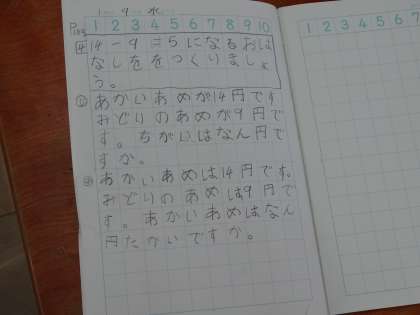 1 2 3 4 5 6 7 8 9 10
1 2 3 4 5 6 7 8
4 14－9＝5になるおは
なしををつくりましょ
う。
① あかいあめが14円です
みどりのあめが9円で
す。ちがいはなん円で
すか。
② あかいあめは14円です。
みどりのあめは9円で
す。あかいあめはなん
円たかいですか。